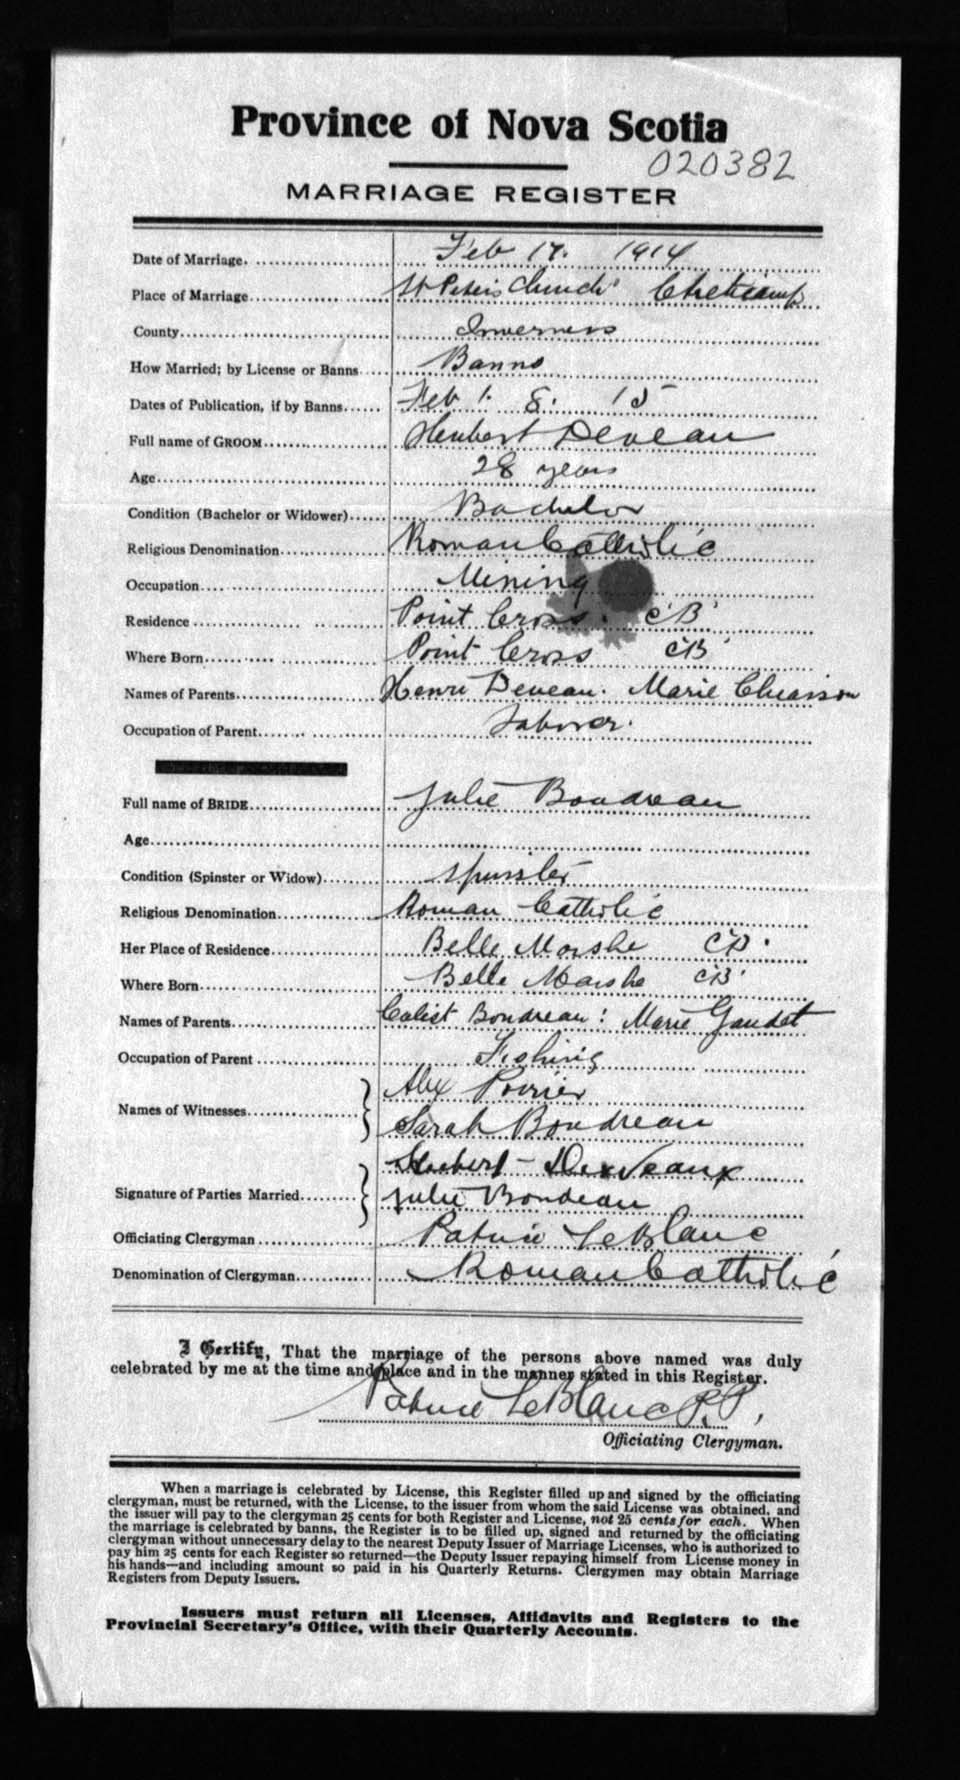 Province of Nova Scotia
020382
MARRIAGE REGISTER
Date of Marriage. Feb 17. 1914
Place of Marriage St Peters Church Cheticamp
County Inverness
How Married; by License or Banns Banns
Dates of Publication, if by Banns Feb 1. 8. 15
Full name of GROOM Herbert Deveau
Age 28 years
Condition (Bachelor or Widower) Bachelor
Religious Denomination Roman Catholic
Occupation Mining
Residence Point Cross. C.B.
Where Born Point Cross C.B.
Names of Parents Henri Deveau. Marie Chiasson
Occupation of Parent Laborer.
Full name of BRIDE Julie Boudreau
Age
Condition (Spinster or Widow) Spinster
Religious Denomination Roman Catholic
Her Place of Residence Belle Marshe C.B.
Where Born Belle Marshe C.B.
Names of Parents Calist Boudreau: Marie Gaudet
Occupation of Parent Fishing
Names of Witnesses Alex Poirier
Sarah Boudreau
Signature of Parties Married Deveaux
Julie Boudeau
Officiating Clergyman Patrice LeBlanc
Denomination of Clergyman Roman Catholic
I Certify, That the marriage of the persons above named was duly
celebrated by me at the time and place and in the manner stated in this Register.
Patrice LeBlanc P.P.
Officiating Clergyman.
When a marriage is celebrated by License, this Register filled up and signed by the officiating
clergyman, must be returned, with the License, to the issuer from whom the said License was obtained, and
the issuer will pay to the clergyman 25 cents for both Register and License, not 25 cents for each. When
the marriage is celebrated by banns, the Register is to be filled up, signed and returned by the officiating
clergyman without unnecessary delay to the nearest Deputy Issuer of Marriage Licenses, who is authorized to
pay him 25 cents for each Register so returned—the Deputy Issuer repaying himself from License money in
his hands—and including amount so paid in his Quarterly Returns. Clergymen may obtain Marriage
Registers from Deputy Issuers.
Issuers must return all Licenses, Affidavits and Registers to the
Provincial Secretary's Office, with their Quarterly Accounts.